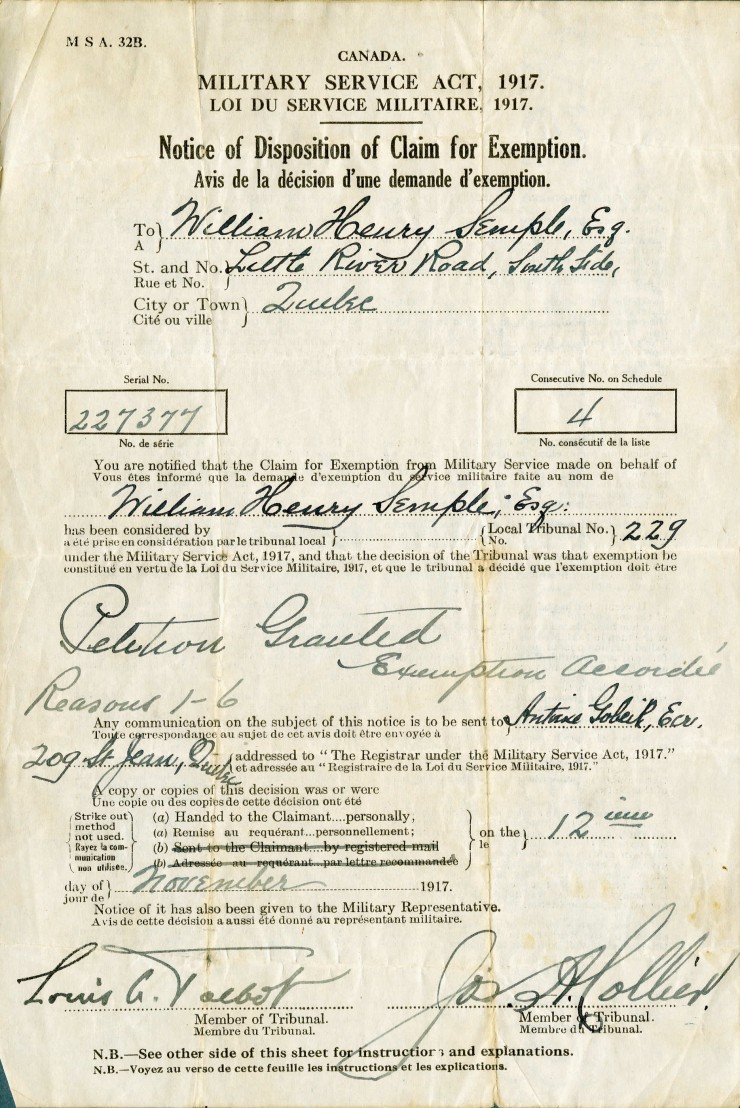 M S A. 32B.
CANADA.
MILITARY SERVICE ACT, 1917.
LOI DU SERVICE MILITAIRE, 1917.
Notice of Disposition of Claim for Exemption.
Avis de la décision d'une demande d'exemption.
To William Henry Semple, Esq.
A
St. and No. Little River Road, South Side,
Rue et No.
City or Town Quebec
Cité ou ville
Serial No. Consecutive No. on Schedule
227377 4
No. de série No. consécutif de la liste
You are notified that the Claim for Exemption from Military Service made on behalf of
Vous êtes informé que la demande d'exemption du service militaire faite au nom de
William Henry Semple, Esq.
has been considered by (Local Tribunal No. 229
a été prise en considération par le tribunal local (No.
under the Military Service Act, 1917, and that the decision of the Tribunal was that exemption be
constitué en vertu de la Loi du Service Militaire, 1917, et que le tribunal a décidé que l'exemption doit être
Petition Granted
Exemption accordée
Reasons 1-6
Any communication on the subject of this notice is to be sent to Antoine Gobeil, Ecr.
Toute correspondance au sujet de cet avis doit être envoyée à
209 St Jean, Quebec addressed to "The Registrar under the Military Service Act, 1917."
et adressée au "Registraire de la Loi du Service Militaire, 1917."
A copy or copies of this decision was or were
Une copie ou des copies de cette décision ont été
Strike out method not used. Rayez la communication non utilisée.
(a) Handed to the Claimant....personally,
(a) Remise au requérant...personnellement;
(b) Sent to the Claimant....by registered mail
(b) Adressée au requérant par lettre recommandée
on the 12 ième
le
day of November 1917.
jour de
Notice of it has also been given to the Military Representative.
Avis de cette décision a aussi été donné au représentant militaire.
Louis A. Talbot Jos. A. Collier
Member of Tribunal. Member of Tribunal.
Membre du Tribunal. Membre du Tribunal.
N.B.—See other side of this sheet for instructions and explanations.
N.B.—Voyez au verso de cette feuille les instructions et les explications.